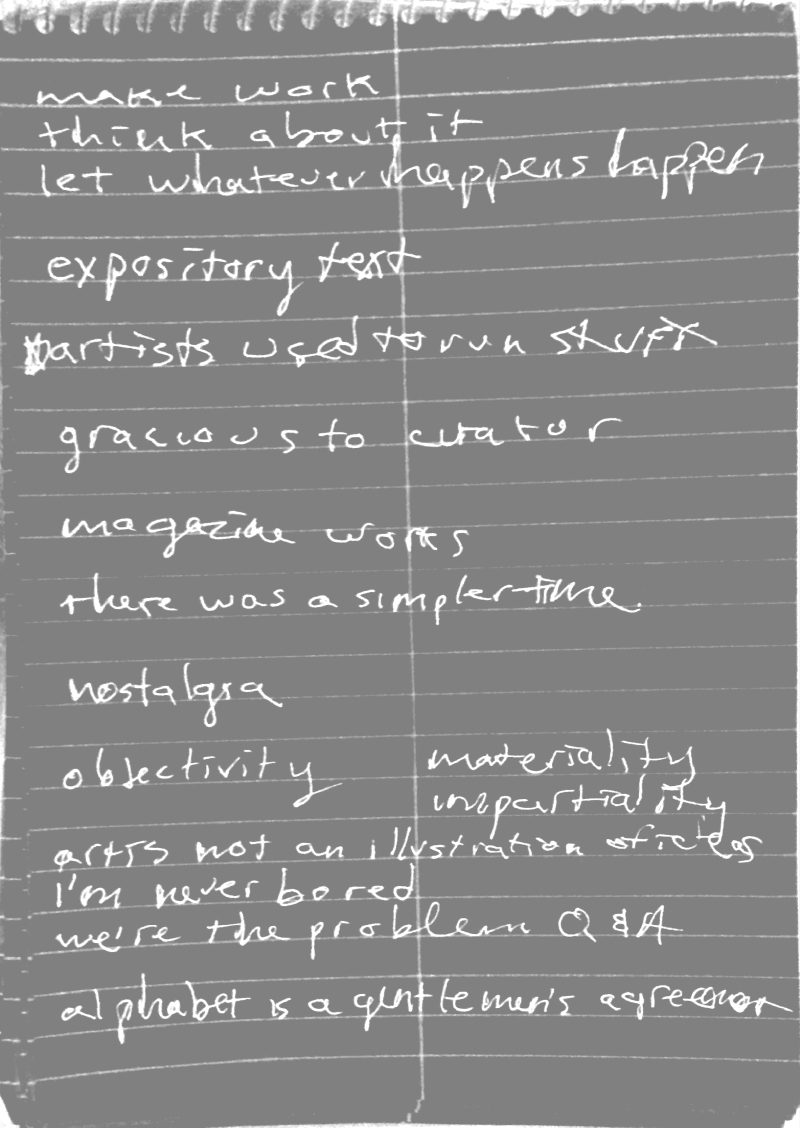 make work
think about it
let whatever happens happen
expository text
artists used to run stuff
gracious to curator
magazine works
there was a simpler time
nostalgia
objectivity materiality
impartiality
art is not an illustration of ideas
I'm never bored
we're the problem Q & A
alphabet is a gentlemen's agreement